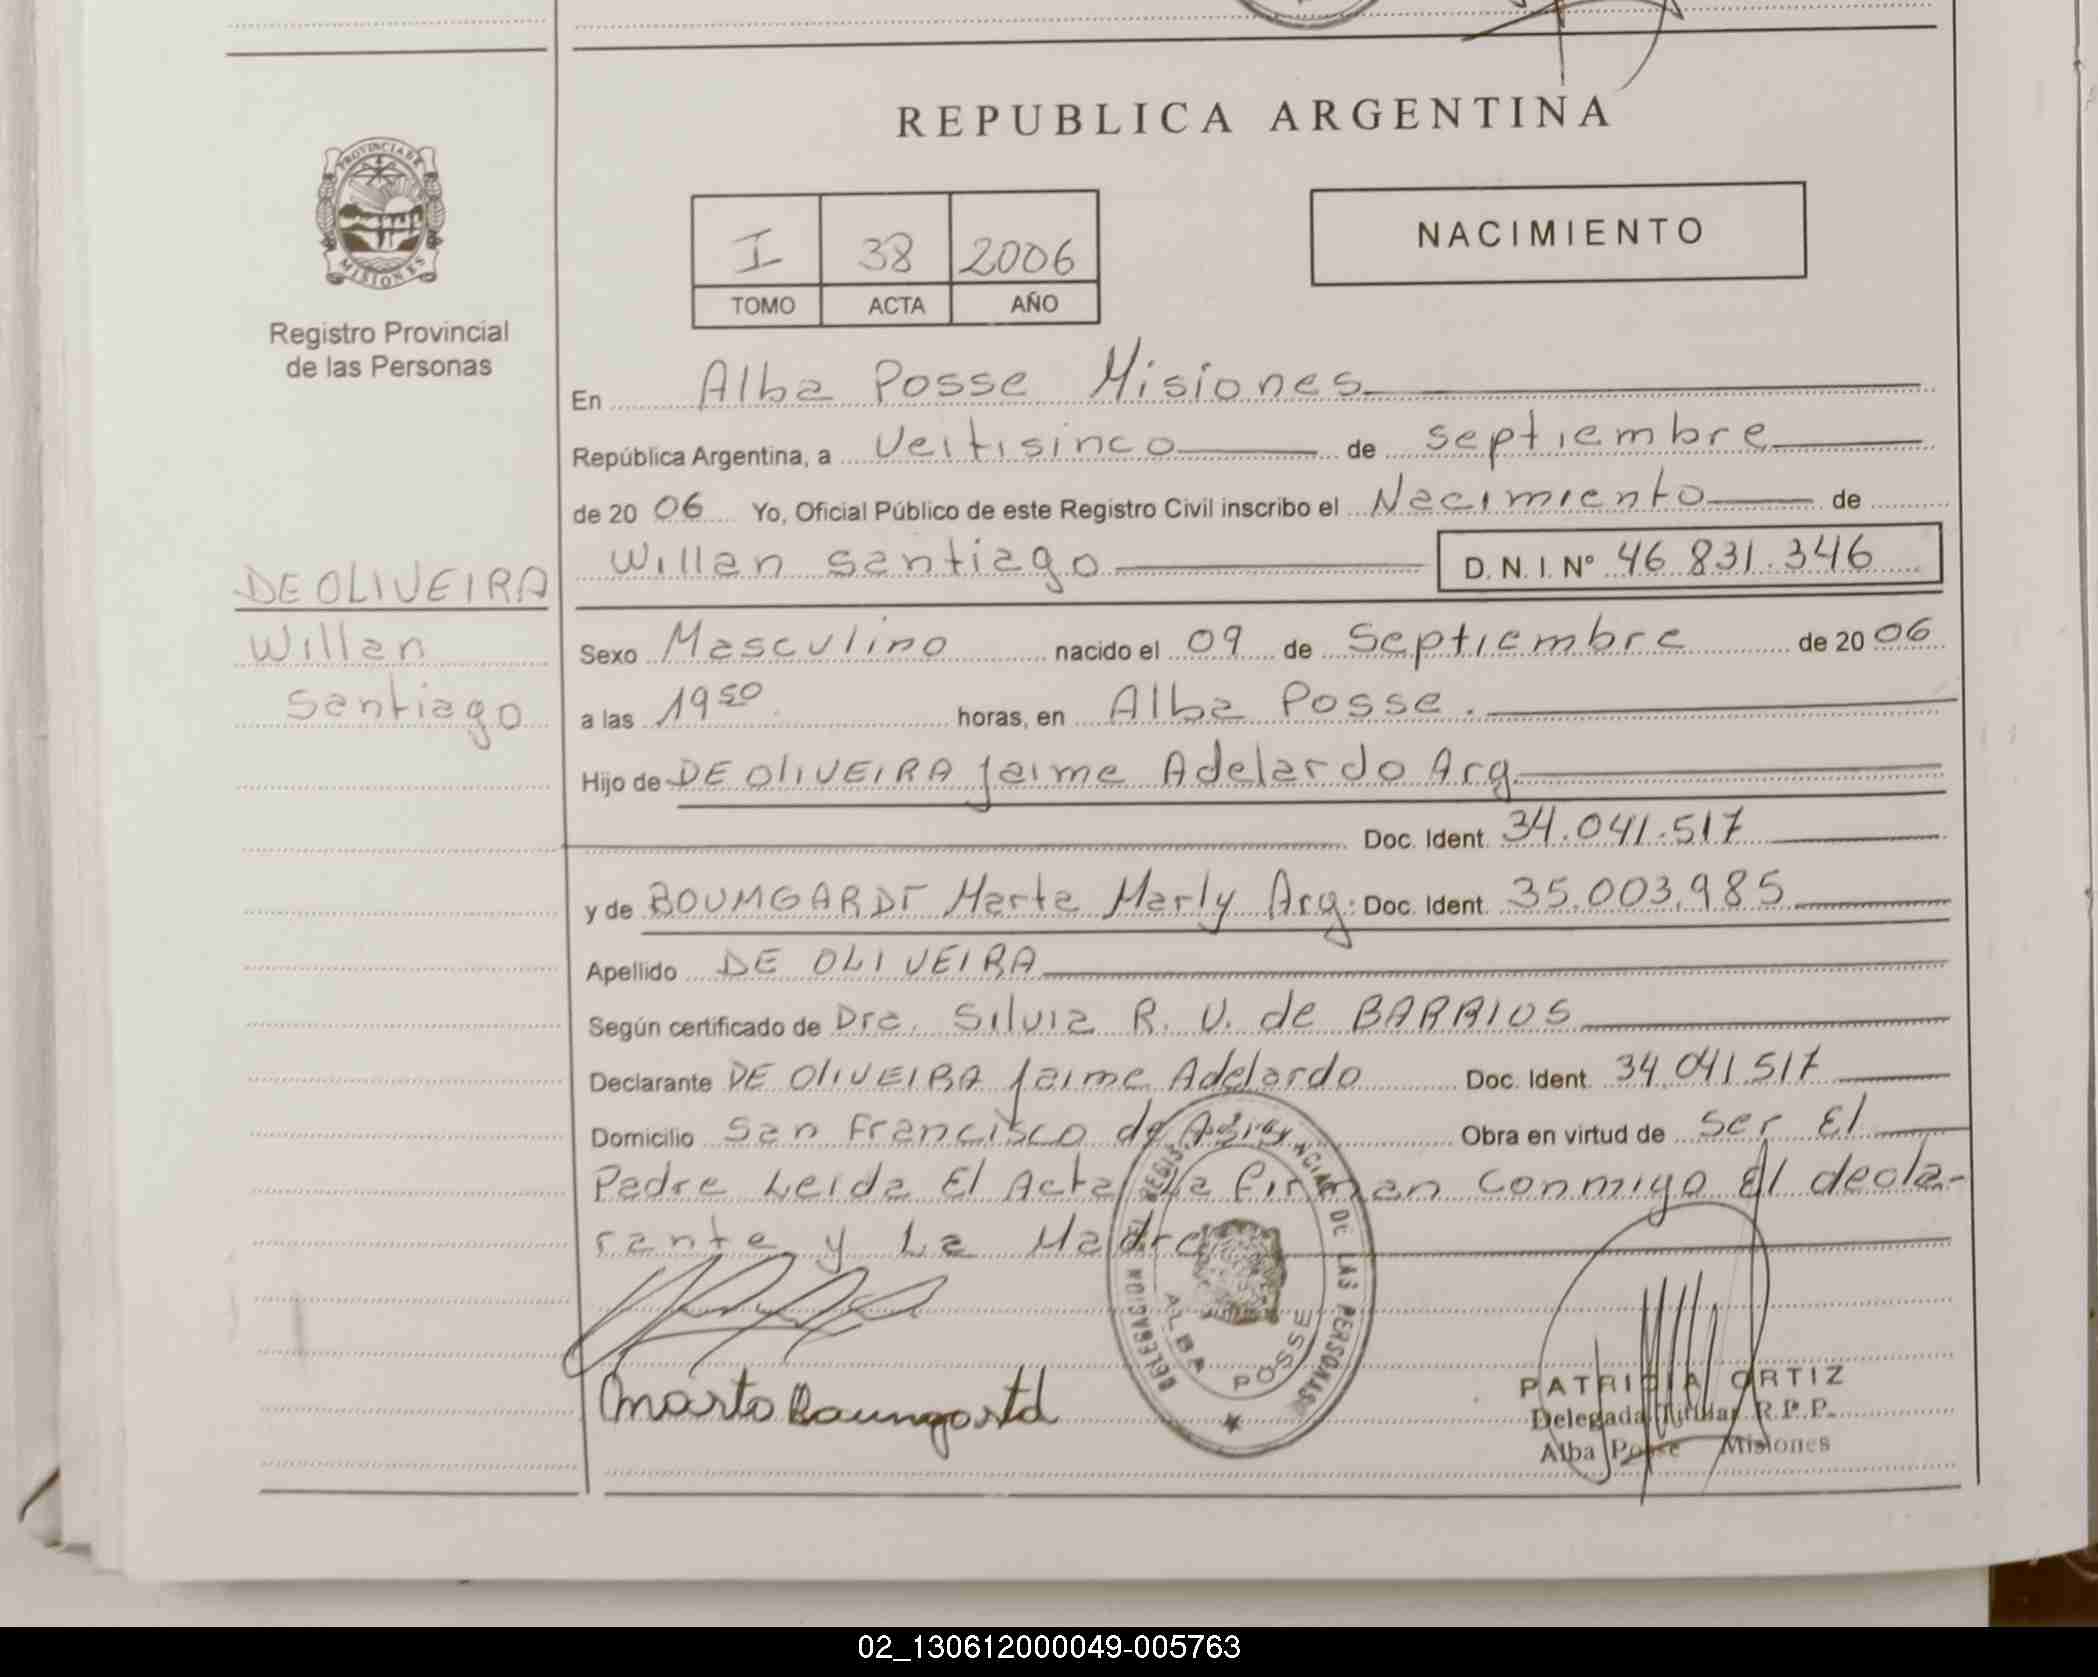 REPUBLICA ARGENTINA
PROVINCIA DE
MISIONES
Registro Provincial
de las Personas
I 38 2006
TOMO ACTA AÑO
NACIMIENTO
En Alba Posse Misiones
República Argentina, a Veitisinco de septiembre
de 20 06 Yo, Oficial Público de este Registro Civil inscribo el Nacimiento de
Willan Santiago D.N.I. Nº 46.831.346
DE OLIVEIRA
Willan
Santiago
Sexo Masculino nacido el 09 de Septiembre de 20 06
a las 19 50 horas, en Alba Posse.
Hijo de DE OLIVEIRA Jaime Adelardo Arg
Doc. Ident. 34.041.517
y de BOUMGARDT Marta Marly Arg. Doc. Ident. 35.003.985
Apellido DE OLIVEIRA
Según certificado de Dra. Silvia R. V. de BARRIOS
Declarante DE OLIVEIRA Jaime Adelardo Doc. Ident. 34.041.517
Domicilio San Francisco de Obra en virtud de ser El
Padre Leida El Acta La firman conmigo El decla-
rante y La Madre
Marta Baumgartd
DELEGACION DEL REGIS DE LAS PERSONAS
ALBA POSSE
PATRICIA ORTIZ
Delegada Titular R.P.P.
Alba Posse Misiones
02_130612000049-005763